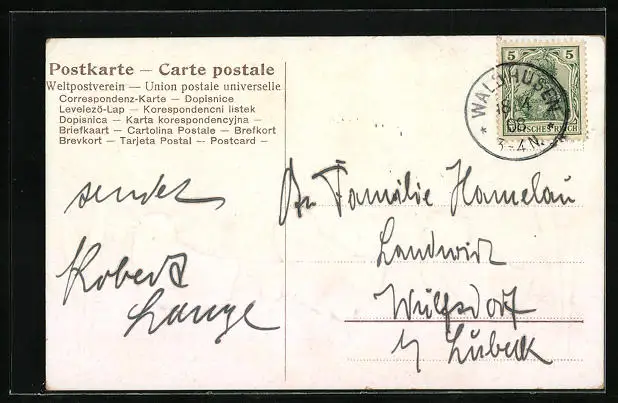 Postkarte — Carte postale
Weltpostverein — Union postale universelle
Correspondenz-Karte — Dopisnice
Levelező-Lap — Korespondencni listek
Dopisnica — Karta korespondencyjna —
Briefkaart — Cartolina Postale — Brefkort
Brevkort — Tarjeta Postal — Postcard —
5 5
WALDHUSEN
4
06
3-4N.
DEUTSCHES REICH
sendet
Robert
Lange
An Familie Hamelau
Landwirt
Wulfsdorf
b/ Lübeck